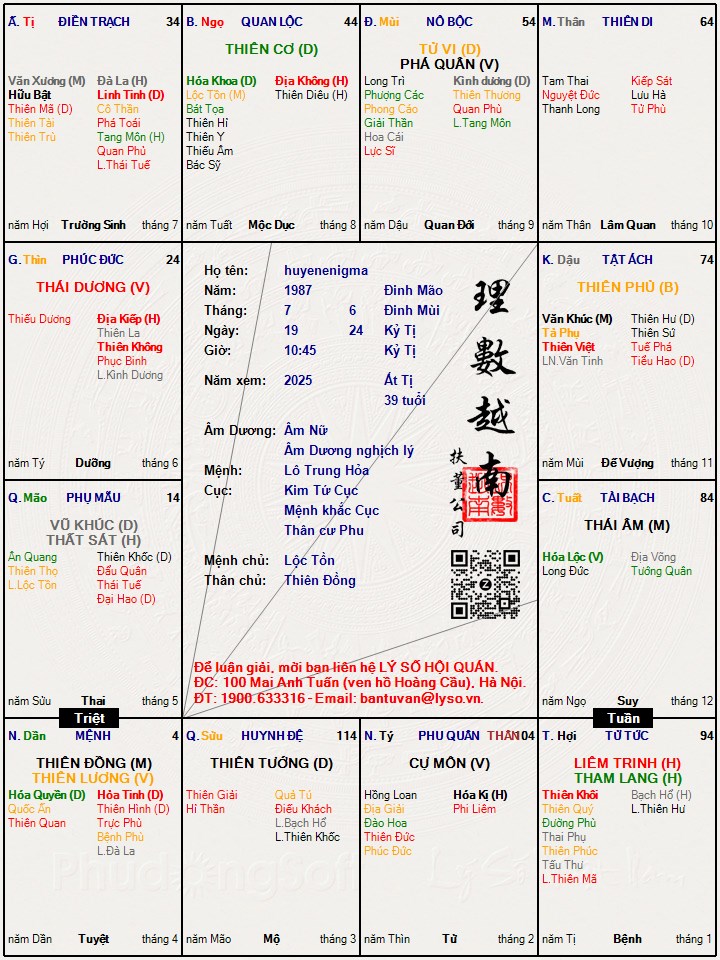 Ấ. Tị ĐIỀN TRẠCH 34
Văn Xương (M) Đà La (H)
Hữu Bật Linh Tinh (D)
Thiên Mã (D) Cô Thần
Thiên Tài Phá Toái
Thiên Trù Tang Môn (H)
Quan Phủ
L.Thái Tuế
năm Hợi Trường Sinh tháng 7
B. Ngọ QUAN LỘC 44
THIÊN CƠ (D)
Hóa Khoa (D) Địa Không (H)
Lộc Tồn (M) Thiên Diêu (H)
Bát Tọa
Thiên Hỉ
Thiên Y
Thiếu Âm
Bác Sỹ
năm Tuất Mộc Dục tháng 8
Đ. Mùi NÔ BỘC 54
TỬ VI (D)
PHÁ QUÂN (V)
Long Trì Kình dương (D)
Phượng Các Thiên Thương
Phong Cáo Quan Phù
Giải Thần L.Tang Môn
Hoa Cái
Lực Sĩ
năm Dậu Quan Đới tháng 9
M. Thân THIÊN DI 64
Tam Thai Kiếp Sát
Nguyệt Đức Lưu Hà
Thanh Long Tử Phù
năm Thân Lâm Quan tháng 10
G. Thìn PHÚC ĐỨC 24
THÁI DƯƠNG (V)
Thiếu Dương Địa Kiếp (H)
Thiên La
Thiên Không
Phục Binh
L.Kình Dương
năm Tý Dưỡng tháng 6
Họ tên: huyenenigma
Năm: 1987 Đinh Mão
Tháng: 7 6 Đinh Mùi
Ngày: 19 24 Kỷ Tị
Giờ: 10:45 Kỷ Tị
Năm xem: 2025 Ất Tị
39 tuổi
Âm Dương: Âm Nữ
Âm Dương nghịch lý
Mệnh: Lô Trung Hỏa
Cục: Kim Tứ Cục
Mệnh khắc Cục
Thân cư Phu
Mệnh chủ: Lộc Tồn
Thân chủ: Thiên Đồng
理數越南
扶董公司
Để luận giải, mời bạn liên hệ LÝ SỐ HỘI QUÁN.
ĐC: 100 Mai Anh Tuấn (ven hồ Hoàng Cầu), Hà Nội.
ĐT: 1900.633316 - Email: bantuvan@lyso.vn.
K. Dậu TẬT ÁCH 74
THIÊN PHỦ (B)
Văn Khúc (M) Thiên Hư (D)
Tả Phụ Thiên Sứ
Thiên Việt Tuế Phá
LN.Văn Tinh Tiểu Hao (D)
năm Mùi Đế Vượng tháng 11
Q. Mão PHỤ MẪU 14
VŨ KHÚC (D)
THẤT SÁT (H)
Ân Quang Thiên Khốc (D)
Thiên Thọ Đẩu Quân
L.Lộc Tồn Thái Tuế
Đại Hao (D)
năm Sửu Thai tháng 5
C. Tuất TÀI BẠCH 84
THÁI ÂM (M)
Hóa Lộc (V) Địa Võng
Long Đức Tướng Quân
năm Ngọ Suy tháng 12
Triệt
Tuần
N. Dần MỆNH 4
THIÊN ĐỒNG (M)
THIÊN LƯƠNG (V)
Hóa Quyền (D) Hỏa Tinh (D)
Quốc Ấn Thiên Hình (D)
Thiên Quan Trực Phù
Bệnh Phù
L.Đà La
năm Dần Tuyệt tháng 4
Q. Sửu HUYNH ĐỆ 114
THIÊN TƯỚNG (D)
Thiên Giải Quả Tú
Hỉ Thần Điếu Khách
L.Bạch Hổ
L.Thiên Khốc
năm Mão Mộ tháng 3
N. Tý PHU QUÂN THÂN 104
CỰ MÔN (V)
Hồng Loan Hóa Kị (H)
Địa Giải Phi Liêm
Đào Hoa
Thiên Đức
Phúc Đức
năm Thìn Tử tháng 2
T. Hợi TỬ TỨC 94
LIÊM TRINH (H)
THAM LANG (H)
Thiên Khôi Bạch Hổ (H)
Thiên Quý L.Thiên Hư
Đường Phù
Thai Phụ
Thiên Phúc
Tấu Thư
L.Thiên Mã
năm Tị Bệnh tháng 1